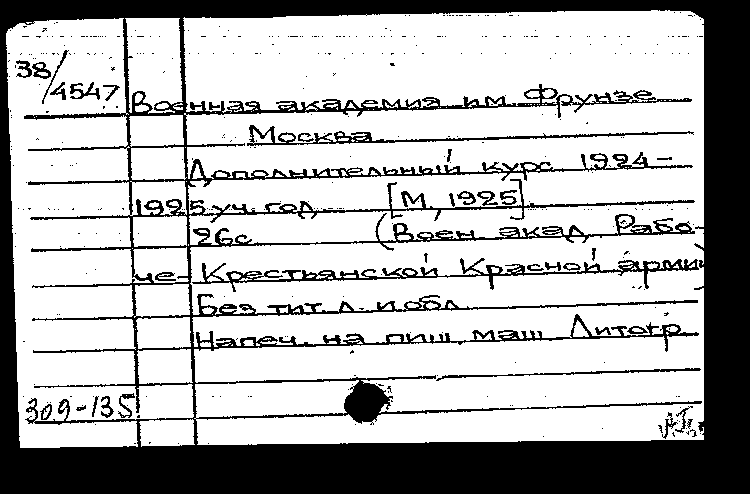 38/4547
Военная академия им Фрунзе
Москва
Дополнительный курс 1924-
1925 уч. год [М, 1925].
26с (Воен акад. Рабо-
че-Крестьянской Красной армии)
Без тит. л. и обл.
Напеч. на пиш. маш. Литогр
309-135